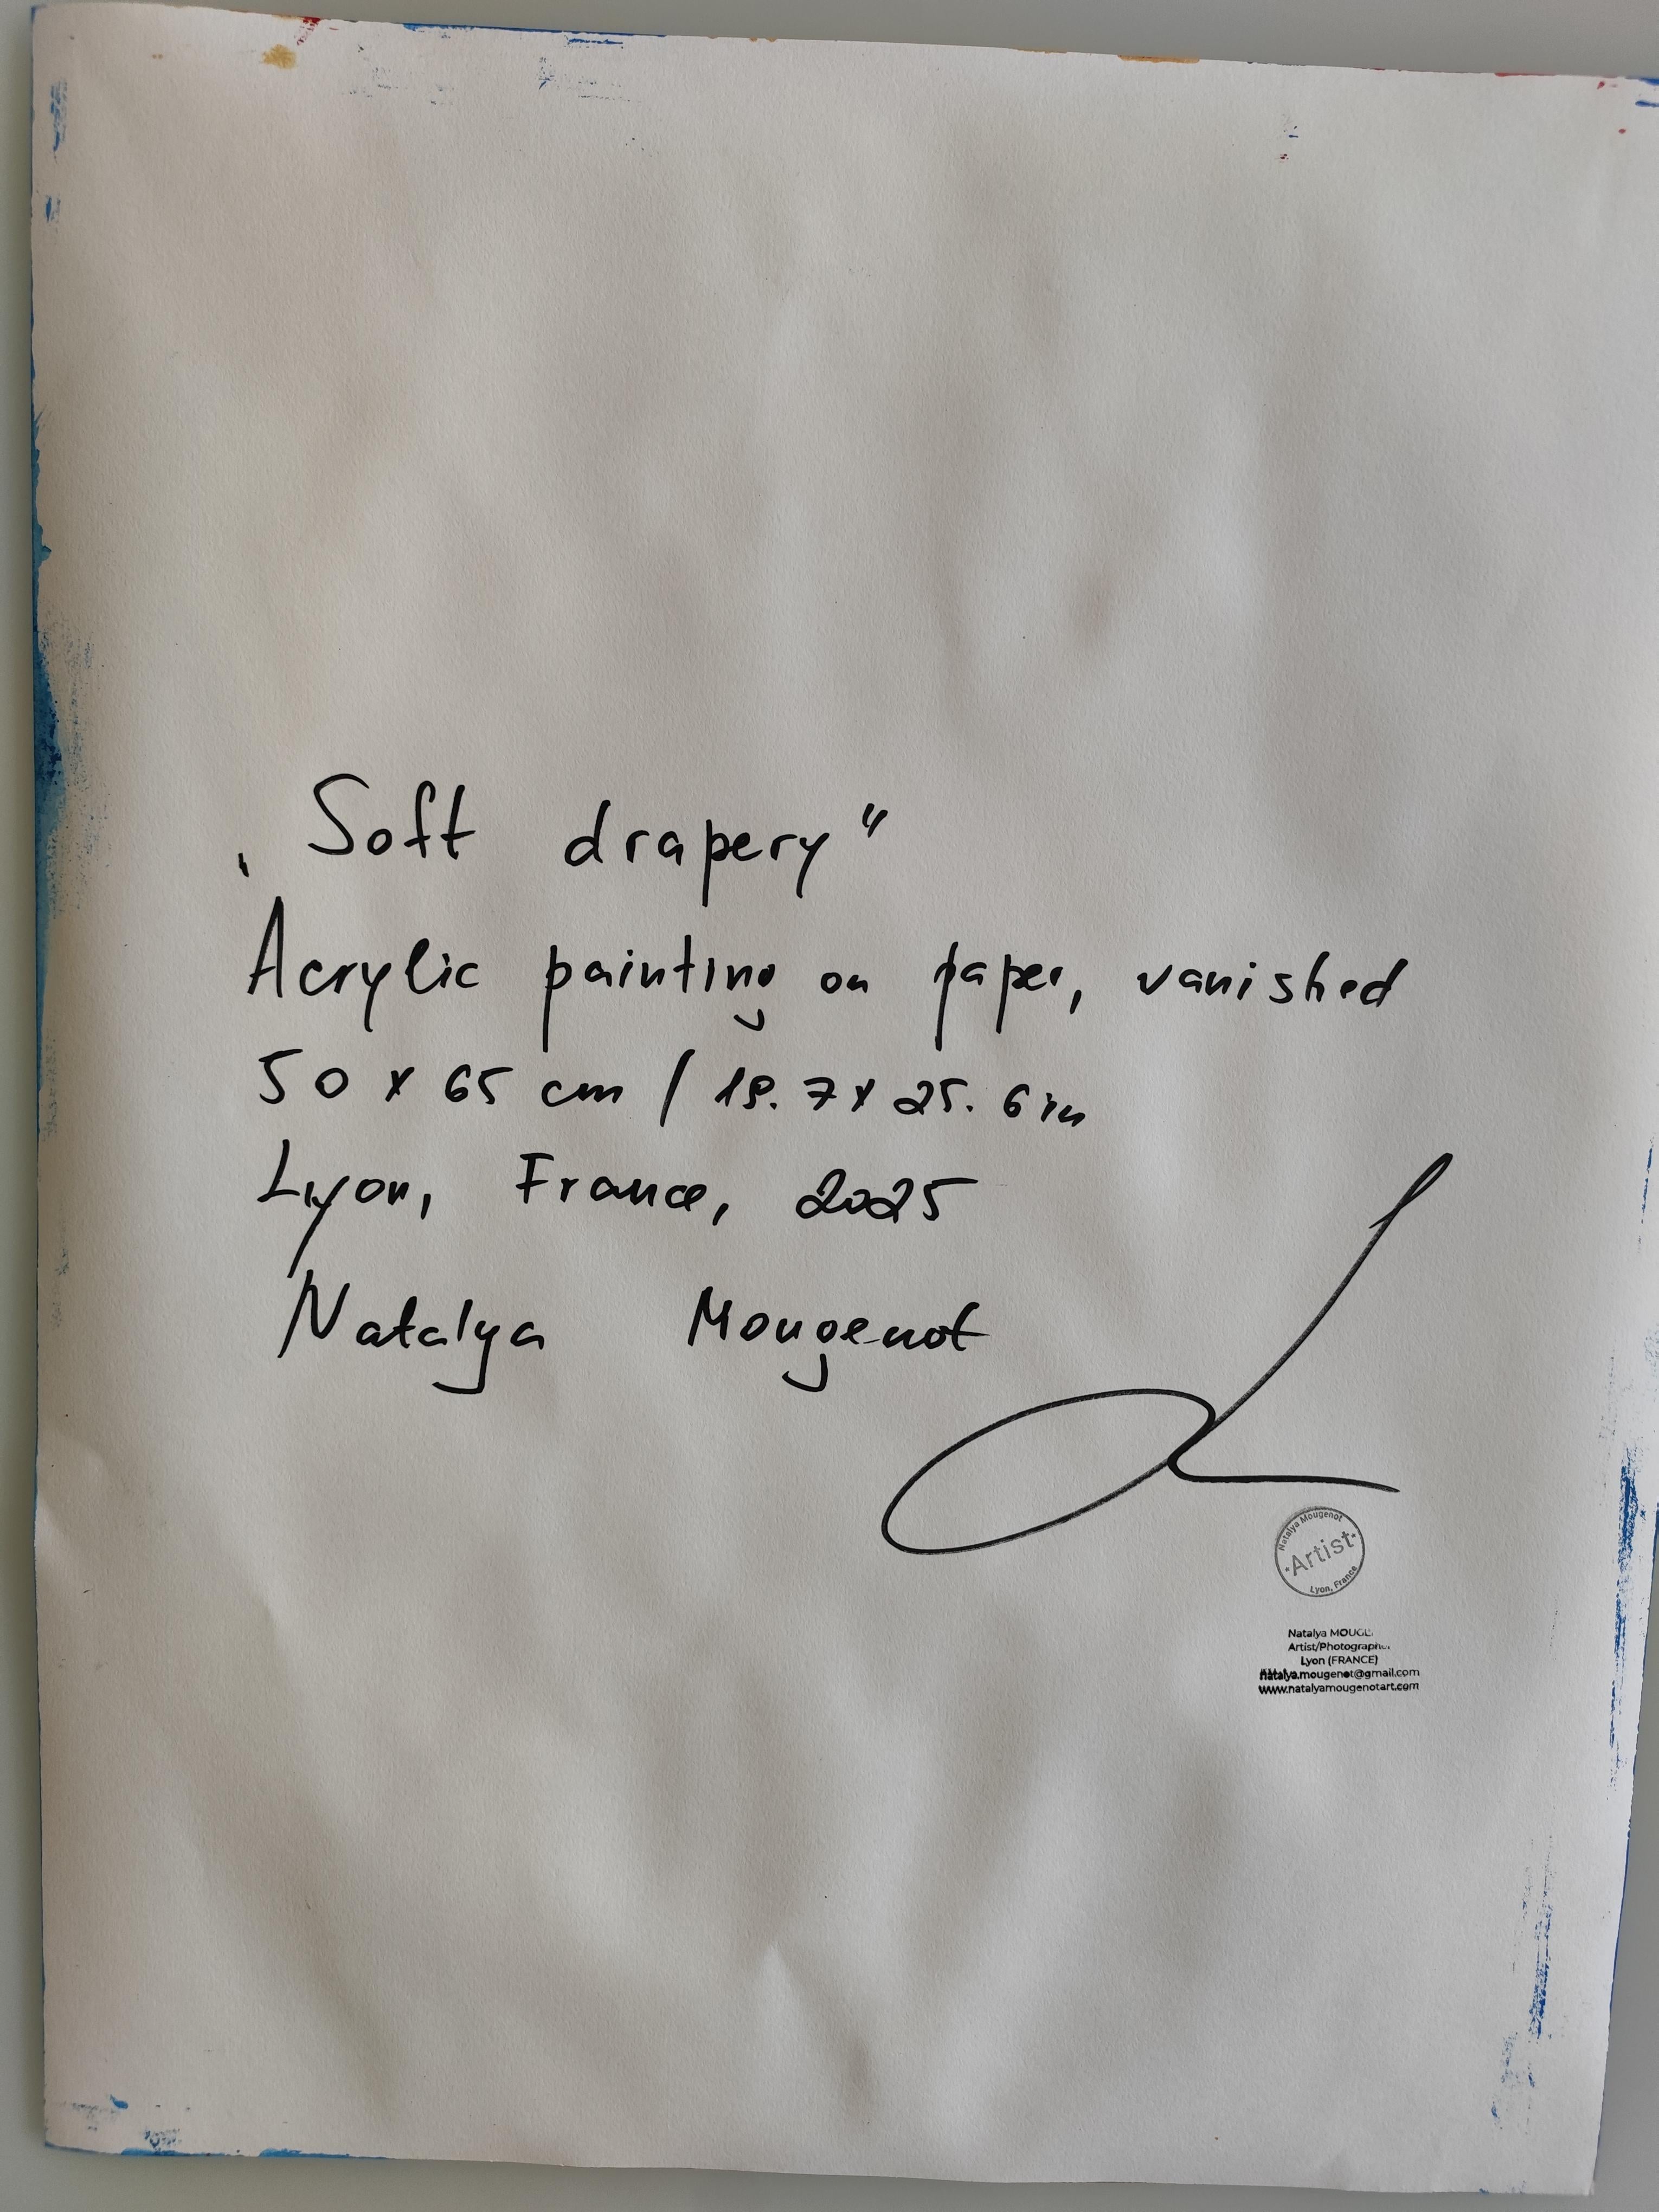 „Soft drapery"
Acrylic painting on paper, vanished
50 x 65 cm / 19.7 x 25.6 in
Lyon, France, 2025
Natalya Mougenot
Natalya Mougenot
Artist
Lyon, France
Natalya
Artist/Photographer
Lyon (FRANCE)
natalya.mougenot@gmail.com
www.natalyamougenotart.com